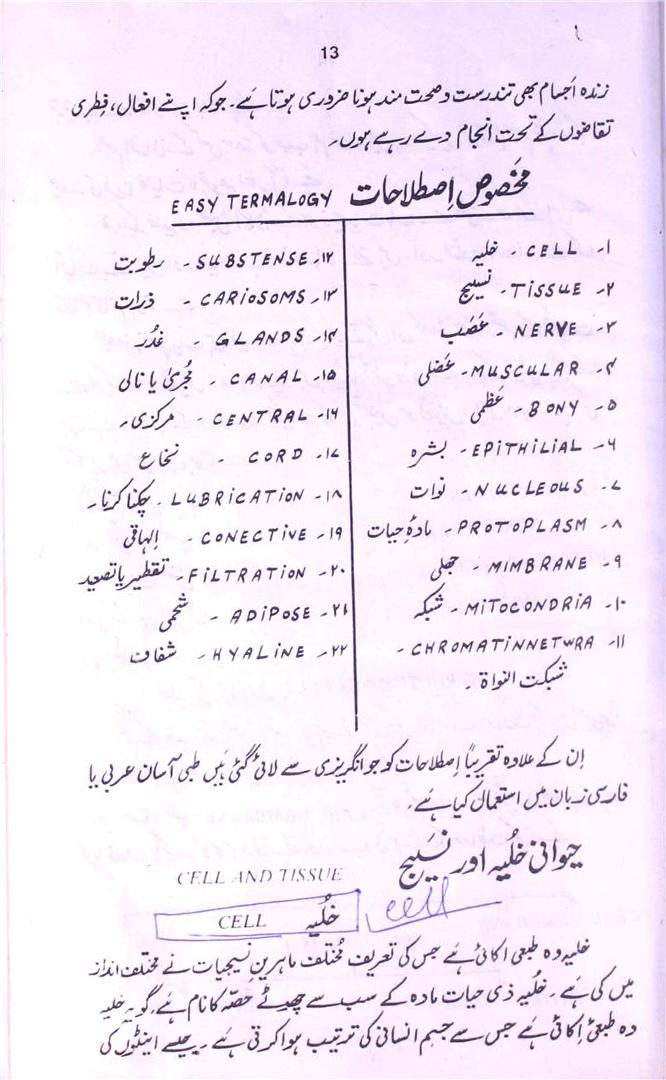 13
زندہ اَجسام بھی تندرست و صحت مند ہونا ضروری ہوتا ہَے۔ جو کہ اپنے افعال، فِطری
تقاضوں کے تحت انجام دے رہے ہوں۔
مخَصُوص اِصطلاحات EASY TERMALOGY
۱- CELL - خلیہ
۲- TISSUE - نسیج
۳- NERVE - عَصَب
۴- MUSCULAR - عَضلی
۵- BONY - عَظمی
۶- EPITHILIAL - بشرہ
۷- NUCLEOUS - نوات
۸- PROTOPLASM - مادۂ حیات
۹- MIMBRANE - جھلی
۱۰- MITOCONDRIA - شبکہ
۱۱- CHROMATINNETWRA -
شبکت النواۃ -
۱۲- SUBSTENSE - رطوبت
۱۳- CARIOSOMS - ذرات
۱۴- GLANDS - غدُر
۱۵- CANAL - مُجریٰ یا نالی
۱۶- CENTRAL - مرکزی-
۱۷- CORD - نخاع
۱۸- LUBRICATION - چکنا کرنا-
۱۹- CONECTIVE - اِلہاقی
۲۰- FILTRATION - تقطیر یا تصعید
۲۱- ADIPOSE - شحمی
۲۲- HYALINE - شفاف
اِن کے علاوہ تقریباً اِصطلاحات کو جو انگریزی سے لائی گئی ہَیں طبی آسان عربی یا
فارسی زبان میں استعمال کیا ہَے۔
حیوانی خلُیہ اور نسَیج
CELL AND TISSUE
خلُیہ CELL
cell
خلیہ وہ طبعی اکائی ہَے جس کی تعریف مُختلف ماہرینِ نسیجیات نے مختلف انداز
میں کی ہَے۔ خلُیہ ذی حیات مادہ کے سب سے چھوٹے حصّہ کا نام ہَے، گویہ خلیہ
وہ طبعیٔ اِکائی ہَے جس سے جسم انسانی کی ترتیب ہوا کرتی ہَے۔ جیسے اینٹوں کی